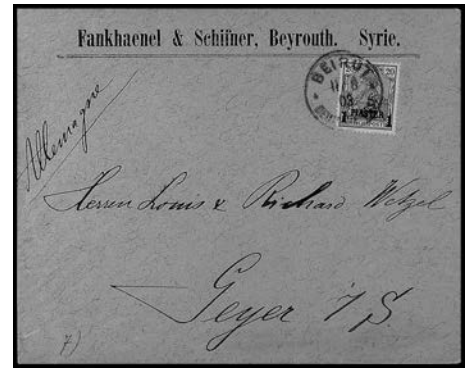 Fankhaenel & Schifner, Beyrouth. Syrie.
BEIRUT
11 6
03
20 20
1 PIASTER 1
Allemagne
Herren Louis & Richard Wetzel
Geyer i/S.
7)